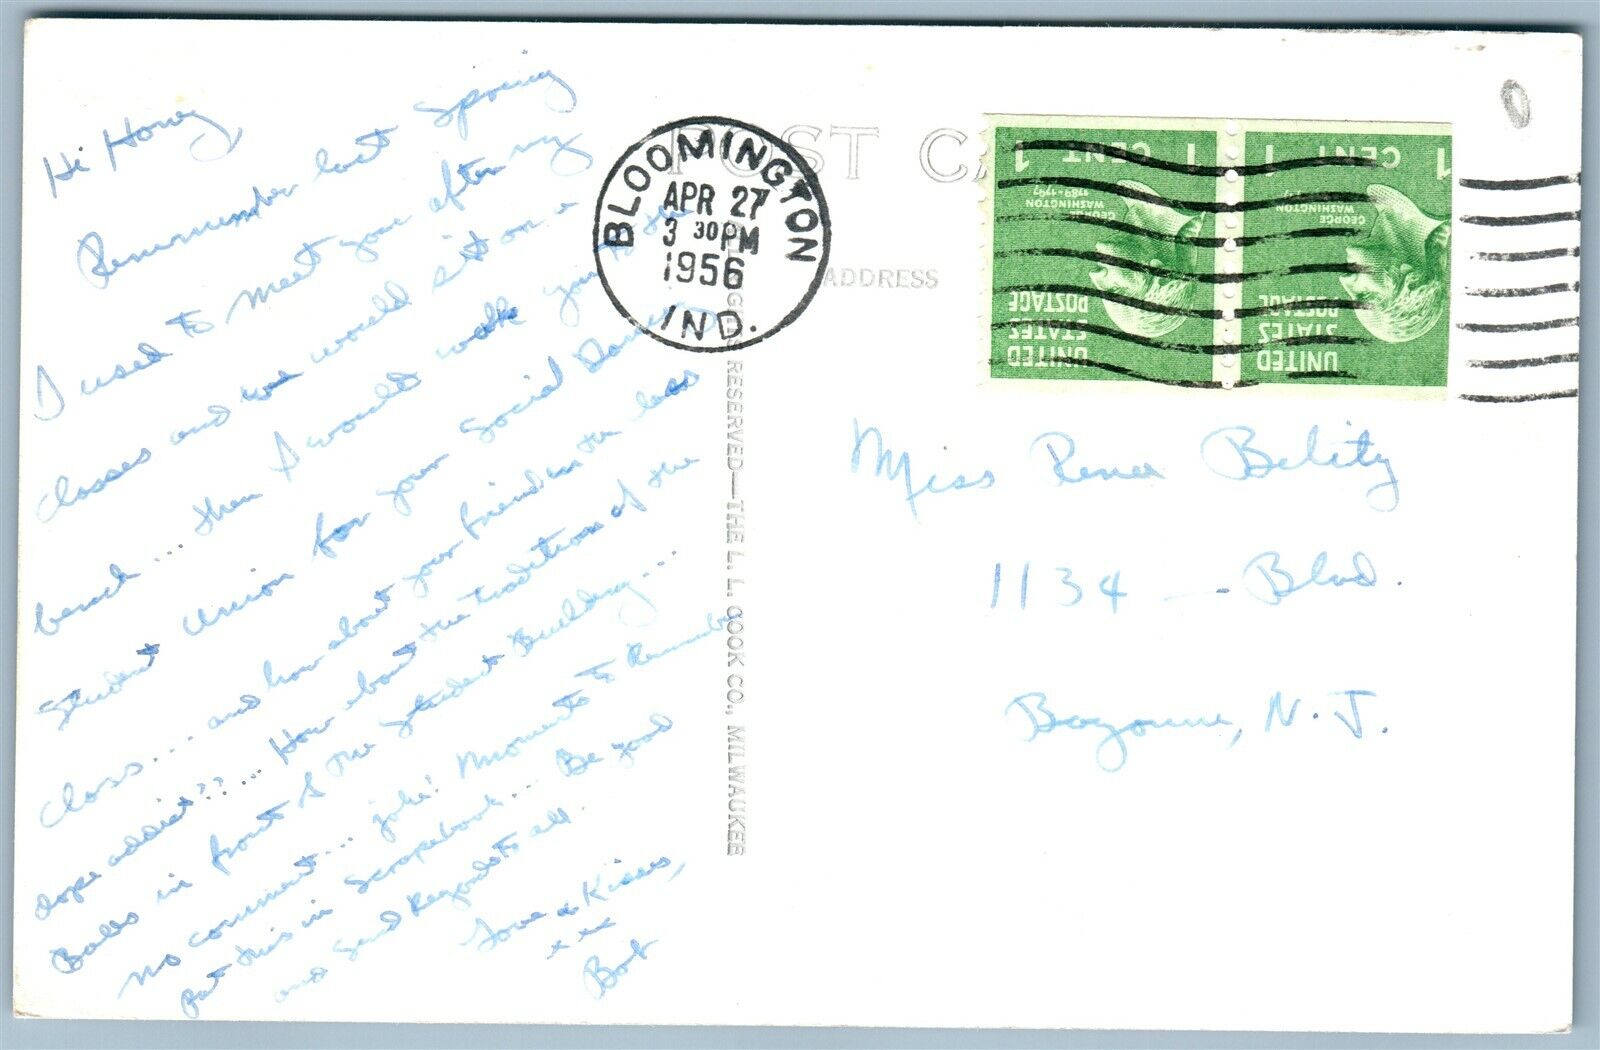 Hi Honey,
Remember last Spring
I used to meet you after my
classes and we would sit on a
bench... then I would walk you to the
Student Union for your Social Dance
class... and how about your friend in the class
dope addict??... How about the traditions of the
Balls in front of the Student Building...
no comment... joke! Moments to Remember
put this in Scrapebook... Be good
and Send Regards to all.
Love & Kisses,
x x x
Bob
POST CA
ADDRESS
GHTS RESERVED—THE L. L. COOK CO., MILWAUKEE
BLOOMINGTON
APR 27
3 30 PM
1956
IND.
1 CENT 1
GEORGE WASHINGTON
1789-1797
UNITED STATES POSTAGE
1 CENT 1
GEORGE WASHINGTON
UNITED STATES POSTAGE
Miss Rena Belity
1134 — Blvd.
Bayonne, N. J.